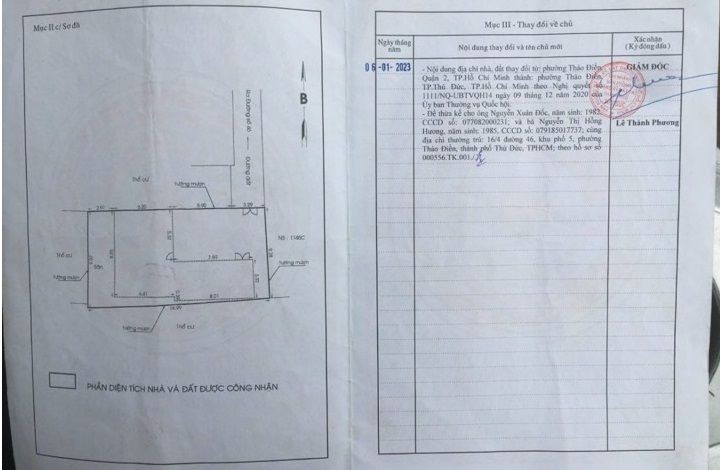 Mục II.c/ Sơ đồ
B
Đường đất
Thổ cư
tường mượn
2.90
5.20
5.90
Thổ cư
NB : 1146C
Sân
tường mượn
7.60
tường mượn
8.01
tường mượn
Thổ cư
PHẦN DIỆN TÍCH NHÀ VÀ ĐẤT ĐƯỢC CÔNG NHẬN
Mục III - Thay đổi về chủ
Ngày tháng năm
Nội dung thay đổi và tên chủ mới
Xác nhận
(Ký đóng dấu)
06-01-2023
- Nội dung địa chỉ nhà, đất thay đổi từ: phường Thảo Điền,
Quận 2, TP.Hồ Chí Minh thành: phường Thảo Điền,
TP.Thủ Đức, TP.Hồ Chí Minh theo Nghị quyết số
1111/NQ-UBTVQH14 ngày 09 tháng 12 năm 2020 của
Ủy ban Thường vụ Quốc hội.
- Để thừa kế cho ông Nguyễn Xuân Đốc, năm sinh: 1982,
CCCD số: 077082000231; và bà Nguyễn Thị Hồng
Hương, năm sinh: 1985, CCCD số: 079185017737; cùng
địa chỉ thường trú: 16/4 đường 46, khu phố 5, phường
Thảo Điền, thành phố Thủ Đức, TPHCM; theo hồ sơ số
000556.TK.001./.
GIÁM ĐỐC
Lê Thành Phương